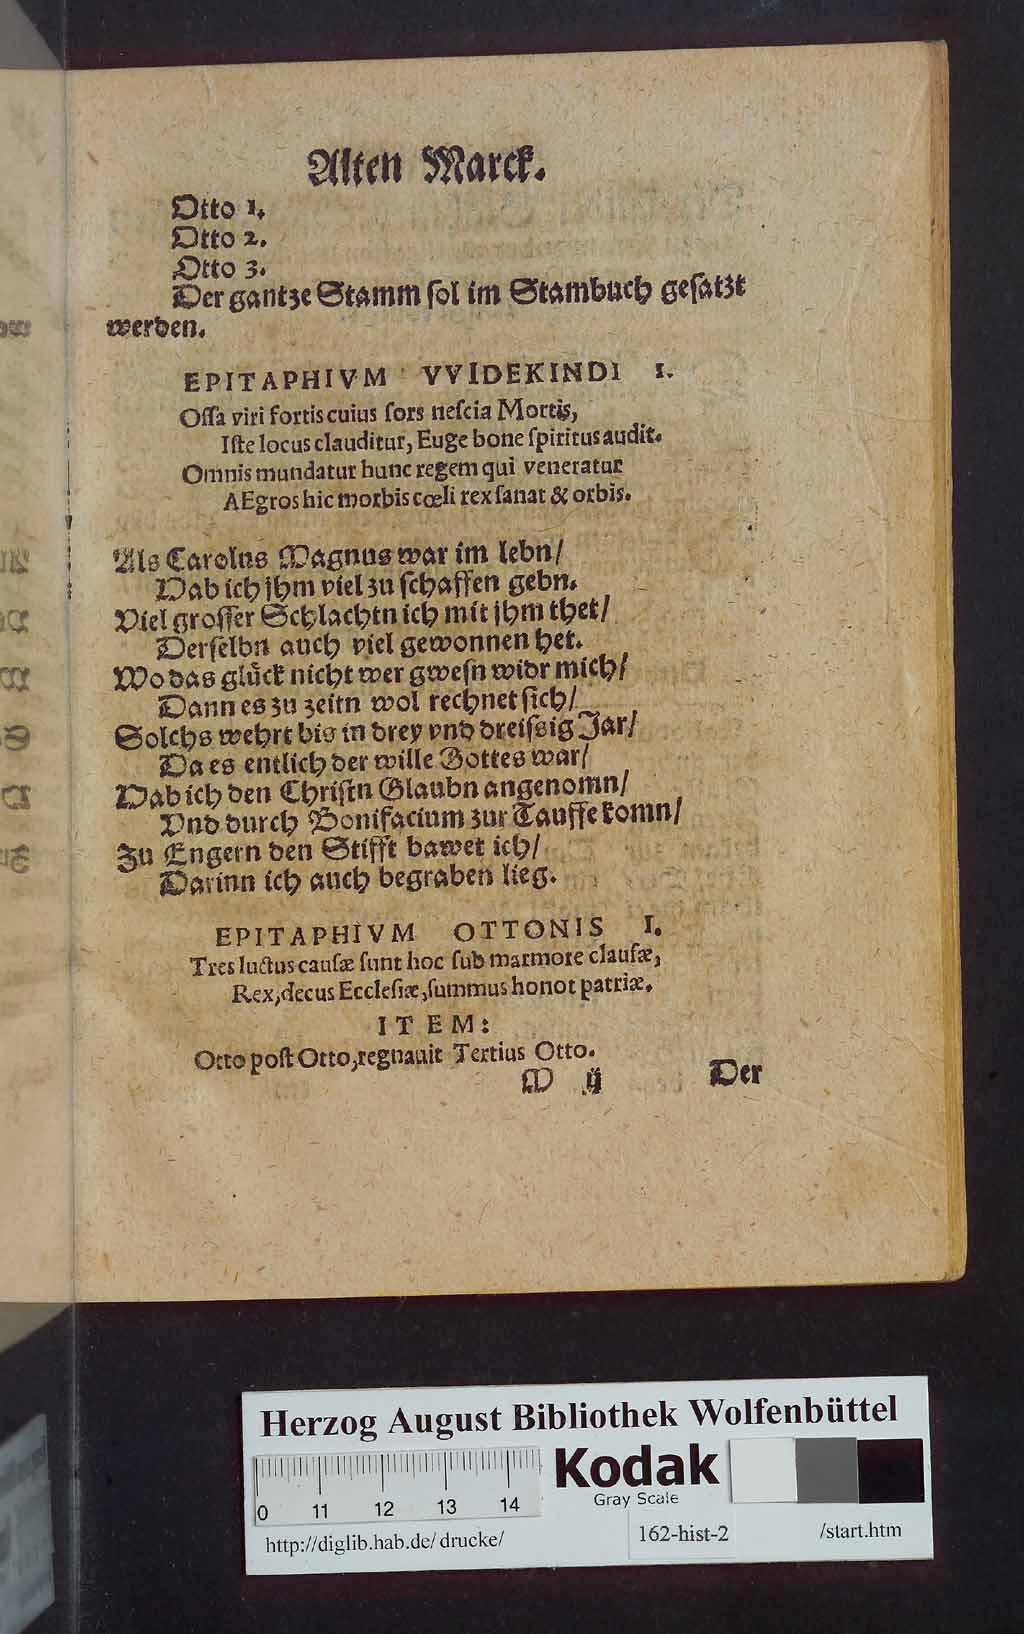 Alten Marck.
Otto 1.
Otto 2.
Otto 3.
Der gantze Stamm ſol im Stambuch geſatzt
werden.
EPITAPHIVM VVIDEKINDI 1.
Oſſa viri fortis cuius ſors neſcia Mortis,
Iſte locus clauditur, Euge bone ſpiritus audit.
Omnis mundatur hunc regem qui veneratur
AEgros hic morbis cœli rex ſanat & orbis.
Als Carolus Magnus war im lebn/
Hab ich jhm viel zu ſchaffen gebn.
Viel groſſer Schlachtn ich mit jhm thet/
Derſelbn auch viel gewonnen het.
Wo das glück nicht wer gweſn widr mich/
Dann es zu zeitn wol rechnet ſich/
Solchs wehrt bis in drey vnd dreiſsig Jar/
Da es entlich der wille Gottes war/
Hab ich den Chriſtn Glaubn angenomn/
Vnd durch Bonifacium zur Tauffe komn/
Zu Engern den Stifft bawet ich/
Darinn ich auch begraben lieg.
EPITAPHIVM OTTONIS I.
Tres luctus cauſæ ſunt hoc ſub marmore clauſæ,
Rex, decus Eccleſiæ, ſummus honot patriæ.
ITEM:
Otto poſt Otto, regnauit Tertius Otto.
M ij Der
Herzog August Bibliothek Wolfenbüttel
Kodak
Gray Scale
0 11 12 13 14
http://diglib.hab.de/drucke/ 162-hist-2 /start.htm